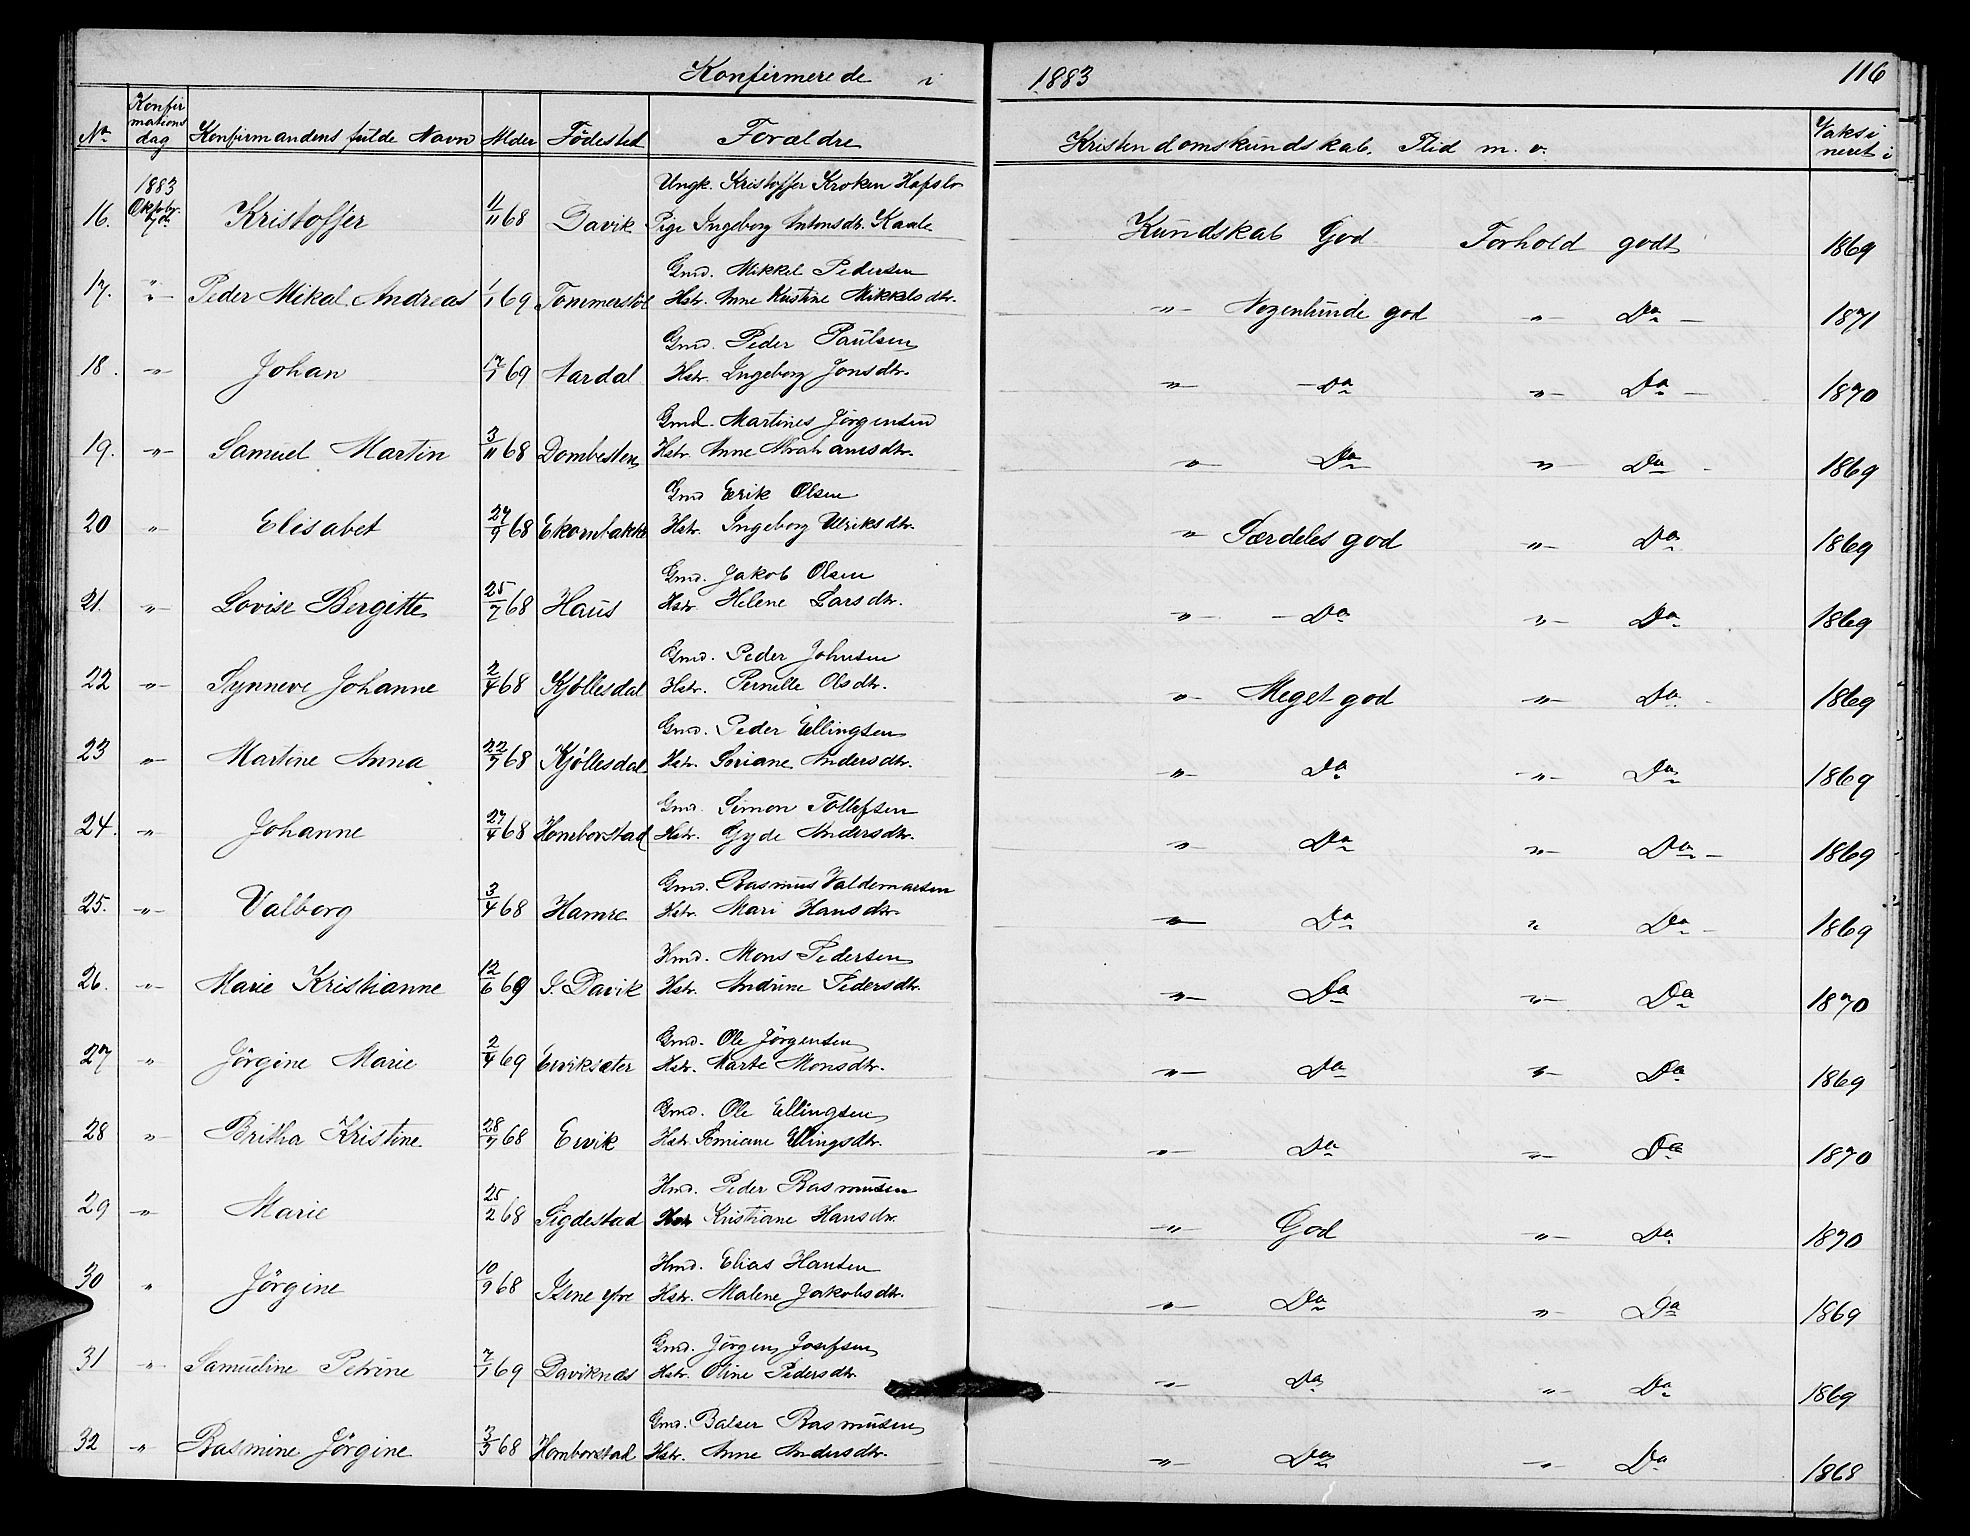 Konfirmerede i 1883 116
No Konfirmationsdag Konfirmandens fulde Navn Alder Födested Forældre Kristendomskundskab. Flid m. v. Vaksineret i
1883
Oktobr.
Ungk. Kristoffer Kroken Hafslo
16. 7de Kristoffer 11/11 68 Davik Pige Ingeborg Antonsdtr. Kaale Kundskab God Forhold godt 1869
Gmd. Mikkel Pedersen
17. "- Peder Mikal Andreas 1/1 69 Tommerstöl Hstr. Anne Kristine Mikkelsdtr. "- Nogenlunde god "- Do - 1871
Gmd. Peder Paulsen
18. "- Johan 17/7 69 Aardal Hstr. Ingeborg Jonsdtr. "- - Do "- Do - 1870
Gmd. Martines Jörgensen
19. "- Samuel Martin 3/11 68 Dombesten Hstr. Anne Abrahamsdtr. "- Do "- Do - 1869
Gmd Eerik Olsen
20 "- Elisabet 27/9 68 Ekornbakke Hstr. Ingeborg Ulriksdtr. "- Særdeles god "- Do 1869
Gmd. Jakob Olsen
21. "- Lovise Bergitte 25/7 68 Haus Hstr. Helene Larsdtr. "- - Do "- Do 1869
Gmd. Peder Johnsen
22 "- Synneve Johanne 2/4 68 Kjöllesdal Hstr. Pernille Olsdtr. "- Meget god "- Do - 1869
Gmd. Peder Ellingsen
23 "- Martine Anna 22/7 68 Kjøllesdal Hstr. Soriane Andersdtr. "- Do "- Do 1869
Gmd. Simon Tollefsen
24. "- Johanne 27/4 68 Homborstad Hstr. Gyde Andersdtr. "- Do "- Do - 1869
Gmd. Rasmus Valdemarsen
25. "- Valborg 3/4 68 Hamre Hstr. Mari Hansdtr. "- Do " Do - 1869
Hmd. Mons Pedersen
26. "- Marie Kristianne 12/6 69 I. Davik Hstr. Andrine Pedersdtr. "- Do "- Do 1870
Gmd. Ole Jörgensen
27 " Jörgine Marie 2/4 69 Erviksæter Hstr. Marte Monsdtr. "- Do "- Do 1869
Gmd. Ole Ellingsen
28 "- Britha Kristine 28/7 68 Ervik Hstr. Ellingsdtr. "- Do "- Do 1870
Hmd. Peder Rasmusen
29 "- Marie 25/2 68 Sigdestad Hstr Kristiane Hansdtr. "- God "- Do 1870
Hmd. Elias Hansen
30 " Jörgine 10/9 68 Isene yvre Hstr. Malene Jakobsdtr. "- Do "- Do 1869
Gmd. Jörgen Josefsen
31 "- Samueline Petrine 7/1 69 Daviknæs Hstr. Oline Pedersdtr. "- Do "- Do 1869
Gmd. Balser Rasmusen
32 "- Rasmine Jörgine 3/3 68 Homborstad Hstr. Anne Andersdtr. "- Do "- Do 1868